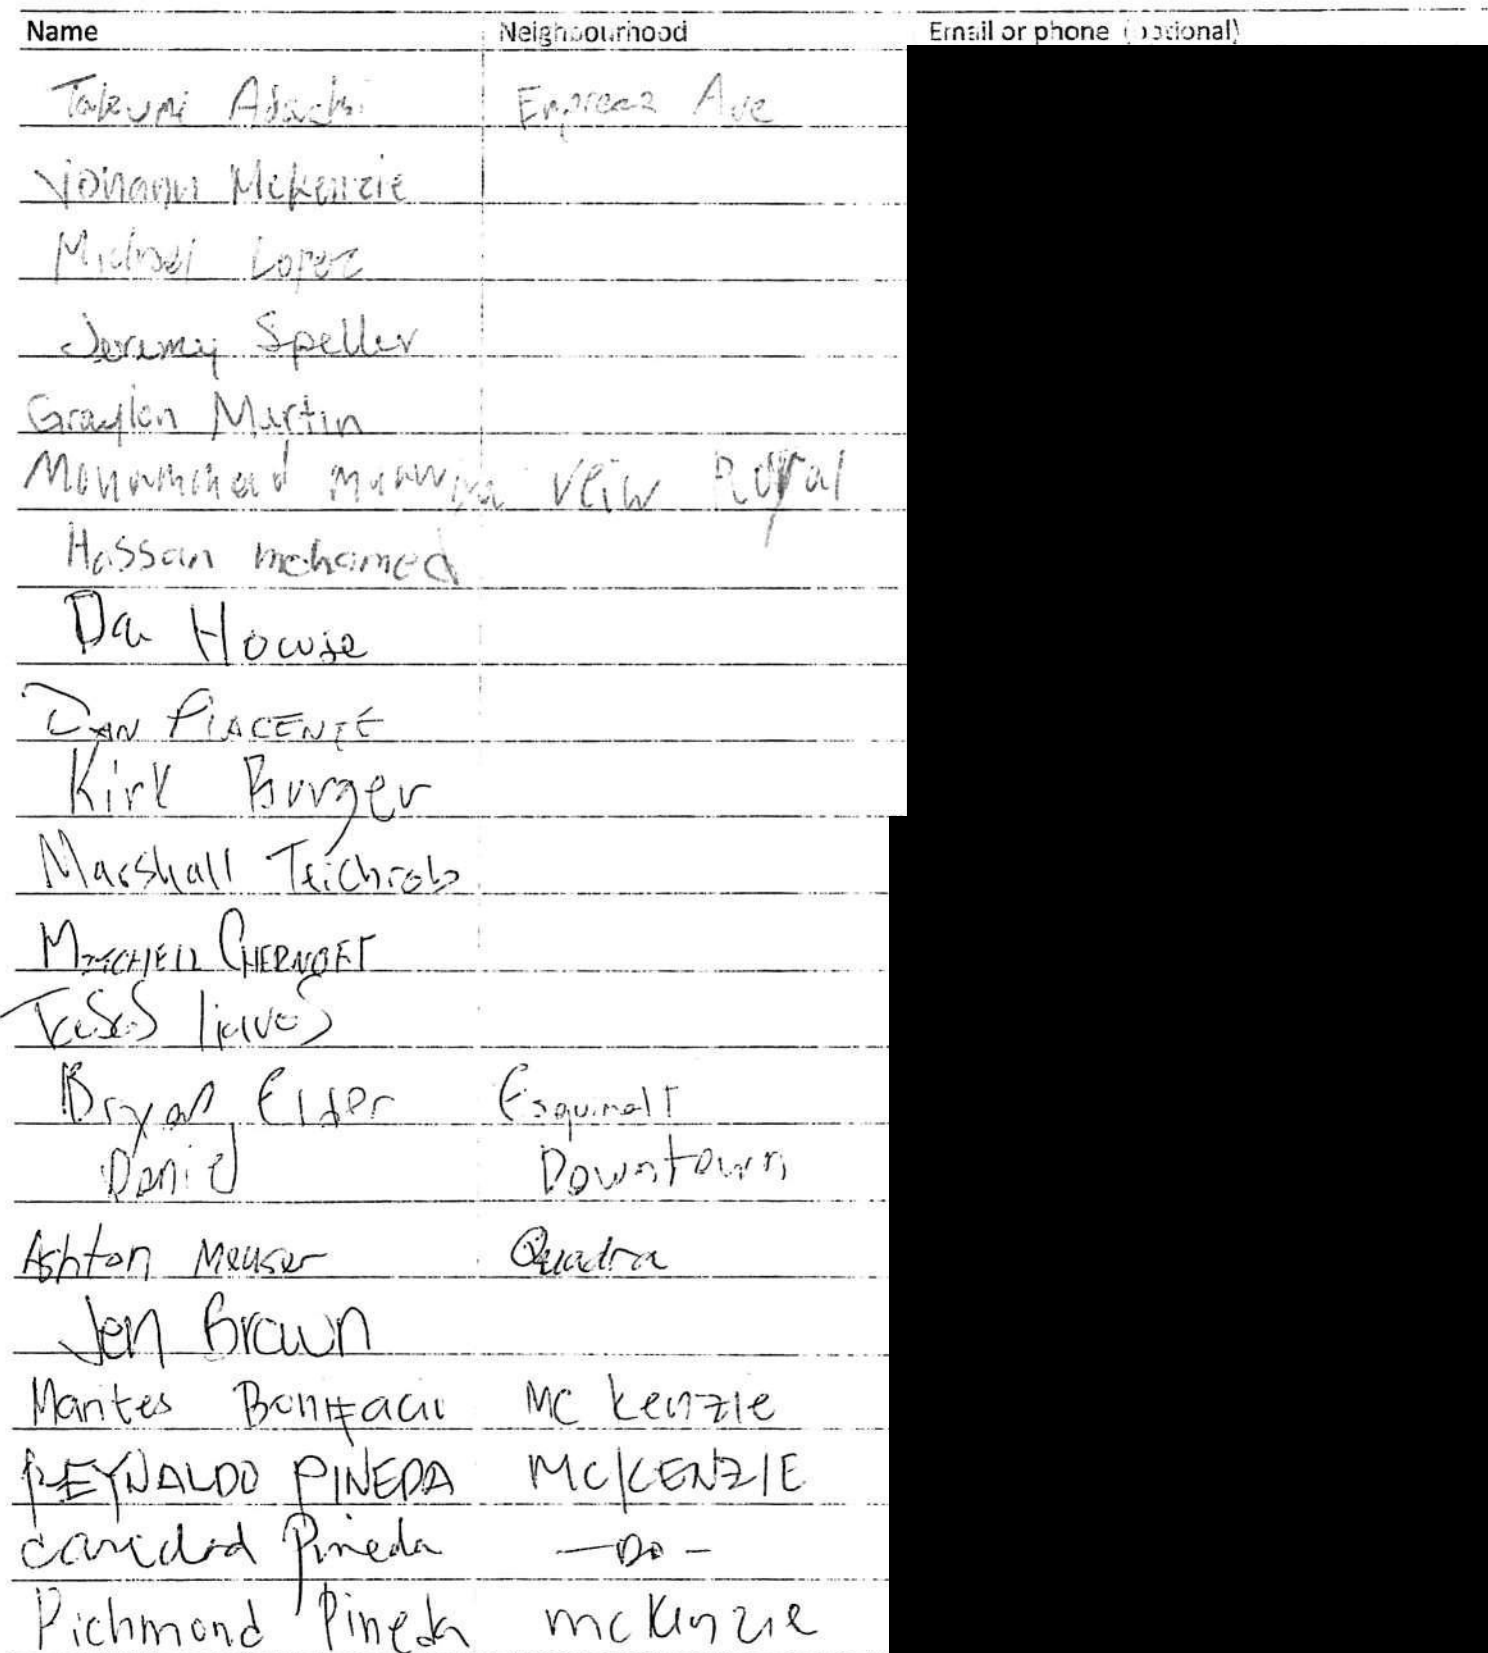 Name Neighbourhood Email or phone (optional)
Takumi Adachi Empress Ave
Johann McKenzie
Michael Lopez
Jeremy Speller
Graylen Martin
Mohammead muawiya Veiw Royal
Hassan mohamed
Da Howse
DAN PIACENTE
Kirk Burger
Marshall Teichrob
MITCHELL CHERNOFF
Bryan Elder Esquimalt
Daniel Downtown
Ashton Meuser Quadra
Jen Brown
Marites Bonifacio MC Kenzie
REYNALDO PINEDA MCKENZIE
caridad Pineda — DO -
Richmond Pineda mcKinzie